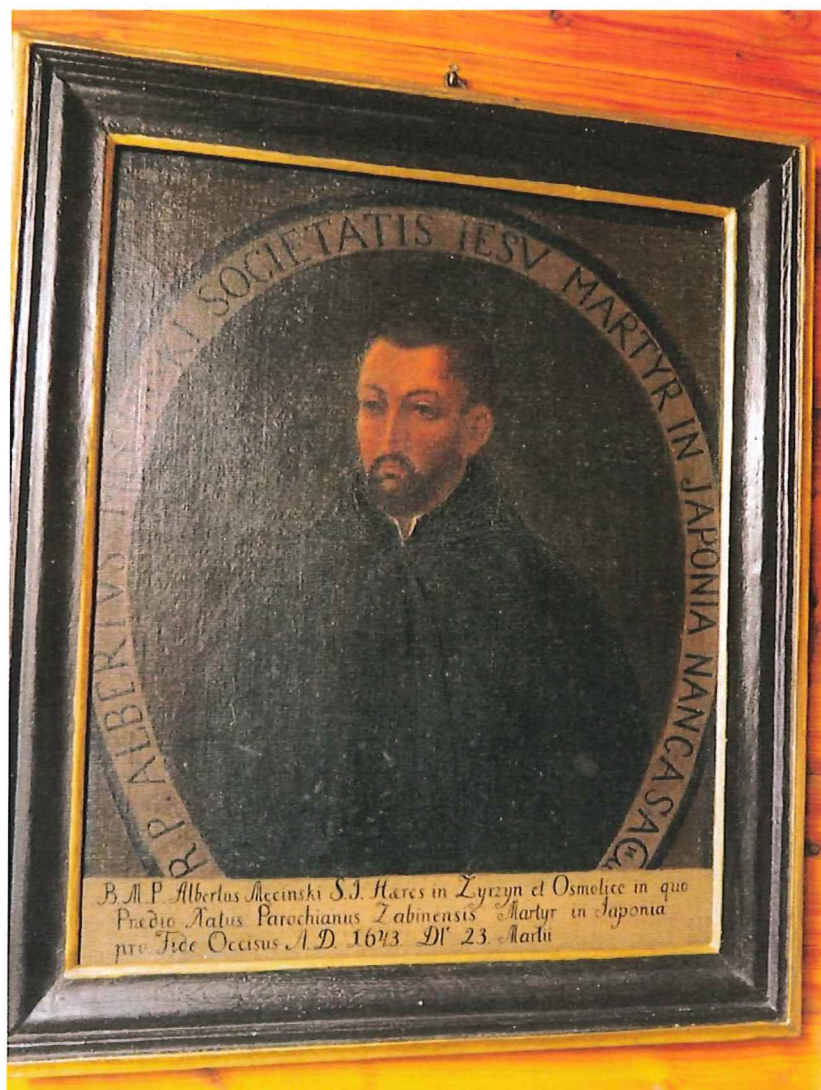 R.P. ALBERTVS SOCIETATIS IESV MARTYR IN JAPONIA NANCASA
B. M. P. Albertus Męcinski S.I. Hæres in Zyrzyn et Osmolice in quo
Prædio Natus Parochianus Zabinensis Martyr in Japonia
pro Fide Occisus A.D. 1643. 23 Martii